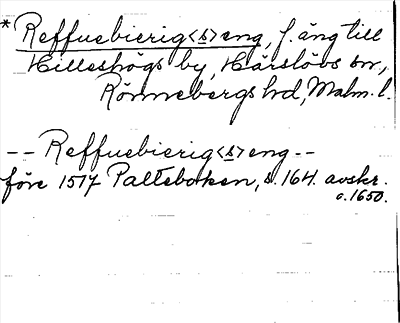 * Reffuebierig<s>eng, f. äng till
Hilleshögs by, Härslövs sn,
Rönnebergs hd, Malm. l.
-- Reffuebierig<s>eng --
före 1517 Palteboken, s. 164. avskr.
c. 1650.